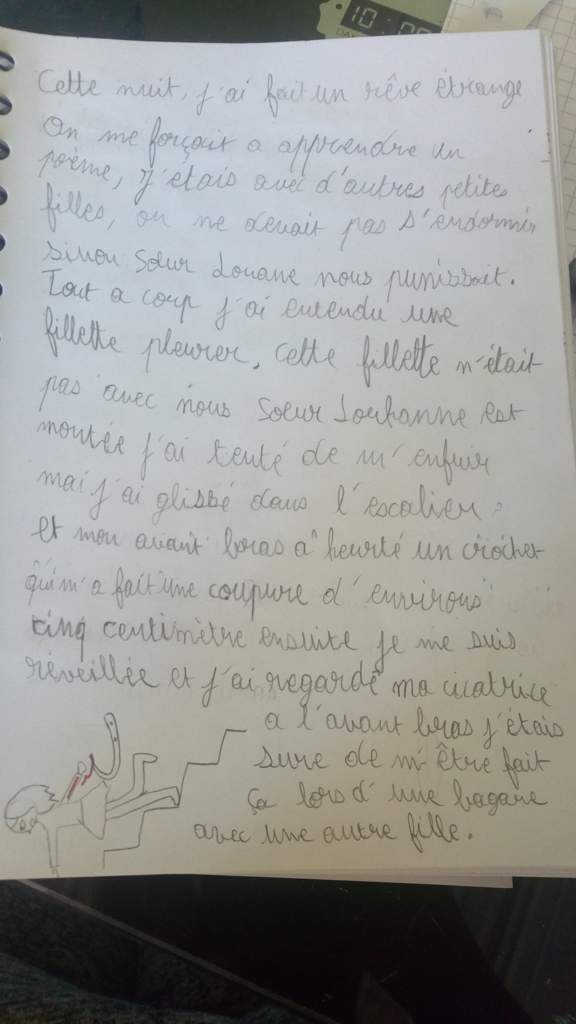 10:0
DA
Cette nuit, j'ai fait un rêve étrange
On me forçait a apprendre un
poème, j'étais avec d'autres petites
filles, on ne devait pas s'endormir
sinon sœur Louane nous punissait.
Tout a coup j'ai entendu une
fillette pleurer, cette fillette n'était
pas avec nous Soeur Louhanne est
montée j'ai tenté de m'enfuir
mai j'ai glissé dans l'escalier
et mon avant bras à heurté un crochet
qui m'a fait une coupure d'environs
cinq centimètre ensuite je me suis
réveillée et j'ai regardé ma cicatrice
a l'avant bras j'étais
sure de m'être fait
ça lors d'une bagare
avec une autre fille.